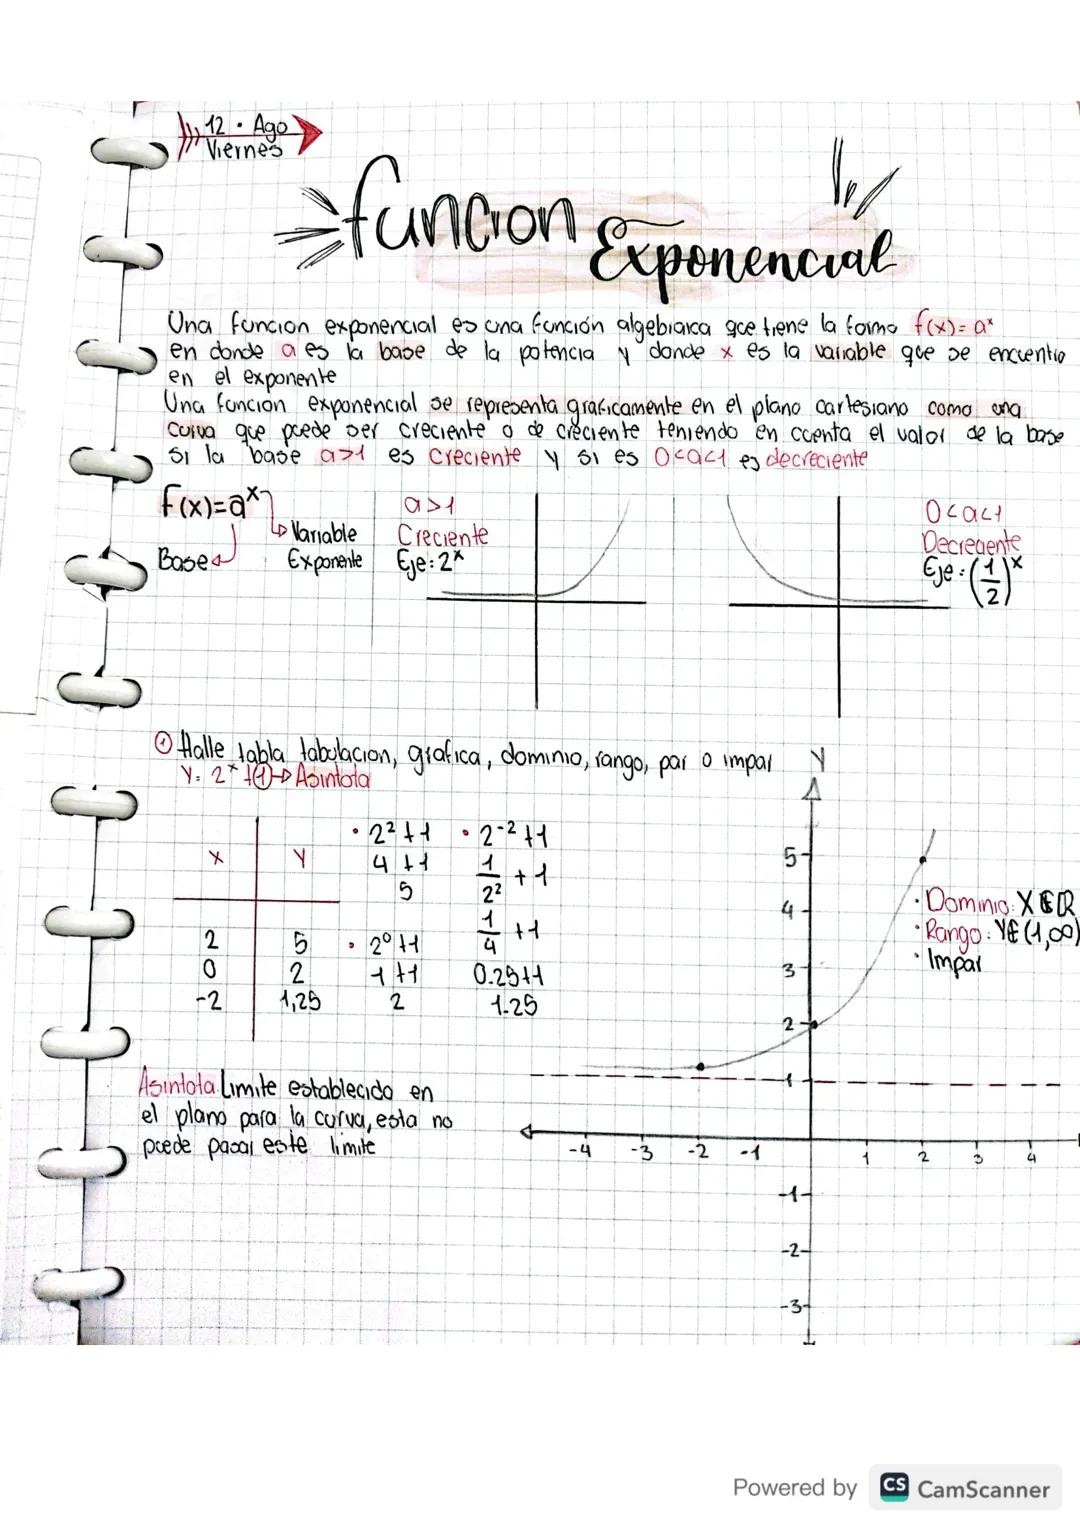 12 · Ago
Viernes
funcion Exponencial
Una funcion exponencial es una función algebraica que tiene la forma f(x)= aˣ
en donde a es la base de la potencia y donde x es la variable que se encuentra
en el exponente
Una funcion exponencial se representa graficamente en el plano cartesiano como una
curva que puede ser creciente o de creciente teniendo en cuenta el valor de la base
si la base a>1 es creciente y si es 0<a<1 es decreciente
f(x)=aˣ
Variable
Exponente
Base
a>1
Creciente
Eje: 2ˣ
0<a<1
Decreciente
Eje: (1/2)ˣ
① Halle tabla tabulacion, grafica, dominio, rango, par o impar
Y= 2ˣ +1 → Asintota
X Y
2 5
0 2
-2 1,25
• 2² +1
4 +1
5
• 2⁰ +1
1 +1
2
• 2⁻² +1
1/2² + 1
1/4 +1
0.25+1
1.25
Y
5
4
3
2
1
-4 -3 -2 -1 1 2 3 4
-1
-2
-3
• Dominio: X ∈ R
• Rango: Y ∈ (1,∞)
• Impar
Asintota Limite establecido en
el plano para la curva, esta no
puede pasar este limite
Powered by CS CamScanner